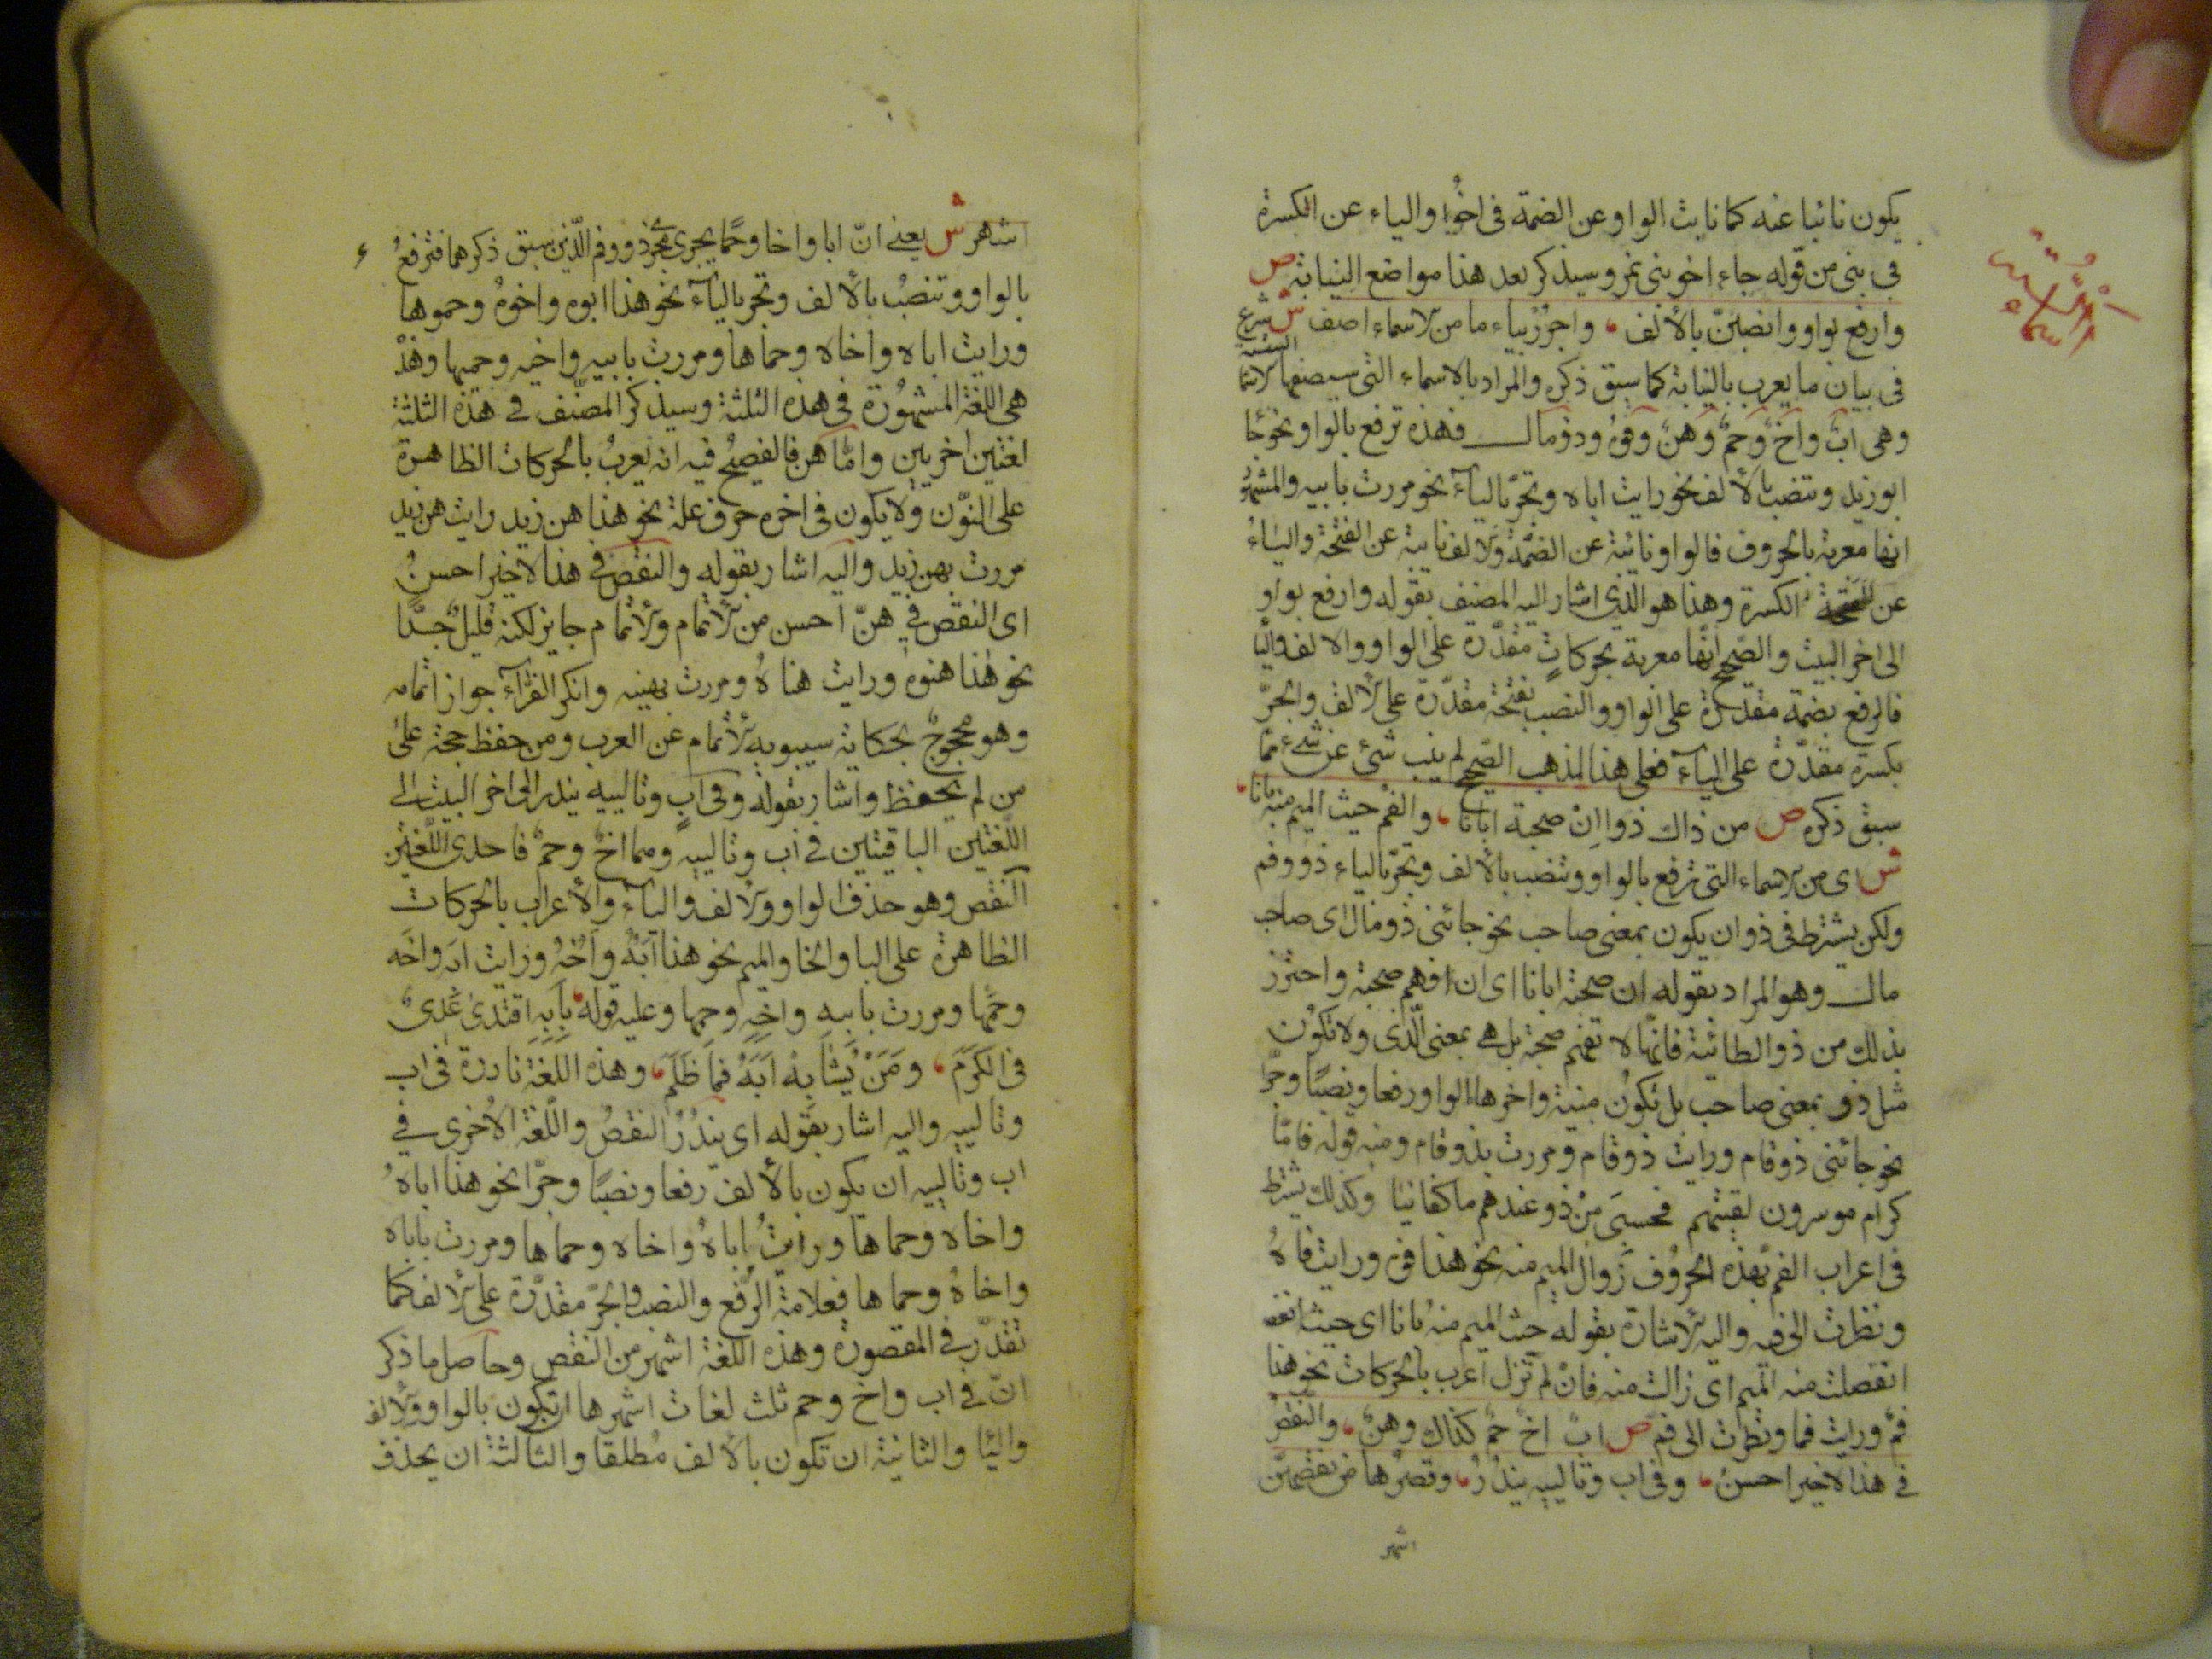 يكون نائبا عنه كما نابت الواو عن الضمة فى اخو والياء عن الكسرة
فى بنى من قوله جاء اخو بنى نمر وسيذكر بعد هذا مواضع النيابة ص
وارفع بواو وانصبنّ بالألف واجرر بياء ما من الاسماء اصف ش شرع
فى بيان ما يعرب بالنيابة كما سبق ذكره والمراد بالاسماء التى سيصفها الاسماء الستة
وهى اب واخ وحم وهن وفوه وذو مال فهذه ترفع بالواو نحو جا
ابو زيد وتنصب بالألف نحو رايت اباه وتجر بالياء نحو مررت بابيه والمشهور
انها معربة بالحروف فالواو نائبة عن الضمة والالف نايبة عن الفتحة والياء
عن الكسرة وهذا هو الذى اشار اليه المصنف بقوله وارفع بواو
الى اخر البيت والصحيح انها معربة بحركات مقدّرة على الواو والالف واليا
فالرفع بضمة مقدرة على الواو والنصب بفتحة مقدّرة على الألف والجرّ
بكسرة مقدّرة على الياء فعلى هذا المذهب الصحيح لم ينب شئ عن شئ ممّا
سبق ذكره ص من ذاك ذو ان صحبة ابانا والفم حيث الميم منه بانا
ش اى من الاسماء التى ترفع بالواو وتنصب بالألف وتجرّ بالياء ذو وفم
ولكن يشترط فى ذو ان يكون بمعنى صاحب نحو جائنى ذو مال اى صاحب
مال وهو المراد بقوله ان صحبة ابانا اى ان افهم صحبة واحترز
بذلك من ذو الطائية فانها لا تفهم صحبة بل هى بمعنى الّذى ولا تكون
مثل ذو بمعنى صاحب بل تكون مبنية واخرها الواو رفعا ونصبًا وجرّا
نحو جائنى ذو قام ورايت ذو قام ومررت بذو قام ومنه قوله فامّا
كرام موسرون لقيتهم فحسبى من ذو عندهم ما كفانيا وكذلك يشترط
فى اعراب الفم بهذه الحروف زوال الميم منه نحو هذا فوه ورايت فاه
ونظرت الى فيه واليه الاشارة بقوله حيث الميم منه بانا اى حيث
انفصلت منه الميم اى زالت منه فان لم تزل اعرب بالحركات نحو هذا
فم ورايت فما ونظرت الى فم ص اب اخ حم كذاك وهن والنقص
فى هذا الاخير احسن وفى اب وتالييه يندر وقصرها من نقصهنّ
اشهر
اشهر ش يعنى انّ ابا واخا وحما يجرى مجرى ذو وفم الّذين سبق ذكرهما فترفع
بالواو وتنصب بالألف وتجر بالياء نحو هذا ابوه واخوه وحموها
ورايت اباه واخاه وحماها ومررت بابيه واخيه وحميها وهذه
هى اللغة المشهورة فى هذه الثلثة وسيذكر المصنّف فى هذه الثلثة
لغتين اخريين وامّا هن فالفصيح فيه انه يعرب بالحركات الظاهرة
على النوّن ولا يكون فى اخره حرف علة نحو هذا هن زيد رايت هن زيد
مررت بهن زيد واليه اشار بقوله والنقص فى هذا الاخير احسن
اى النقص فى هنّ احسن من الأتمام والأتمام جايز لكنه قليل جدّا
نحو هذا هنوه ورايت هناه ومررت بهنيه وانكر الفرّاء جواز اتمامه
وهو محجوج بحكاية سيبويه الأتمام عن العرب ومن حفظ حجة على
من لم يحفظ واشار بقوله وفى اب وتالييه يندر الى اخر البيت الى
اللّغتين الباقيتين فى اب وتالييه وهما اخ وحم فاحدى اللّغتين
النقص وهو حذف الواو والألف والياء والأعراب بالحركات
الظاهرة على البا والخا والميم نحو هذا ابه واخه ورايت ابه واخه
وحمها ومررت بابه واخه وحمها وعليه قوله بابه اقتدى عدى
فى الكرم ومن يشابه ابه فما ظلم وهذه اللغة نادرة فى اب
وتالييه واليه اشار بقوله اى يندر النقص واللّغة الاخرى فى
اب وتالييه ان يكون بالألف رفعا ونصبًا وجرّا نحو هذا اباه
واخاه وحماها ورايت اباه واخاه وحماها ومررت باباه
واخاه وحماها فعلامة الرّفع والنصب والجرّ مقدّرة على الألف كما
تقدّر فى المقصورة وهذه اللغة اشهر من النقص وحاصل ما ذكر
انّ فى اب واخ وحم ثلث لغات اشهرها ان تكون بالواو والألف
واليا والثانية ان تكون بالألف مطلقا والثالثة ان يحذف